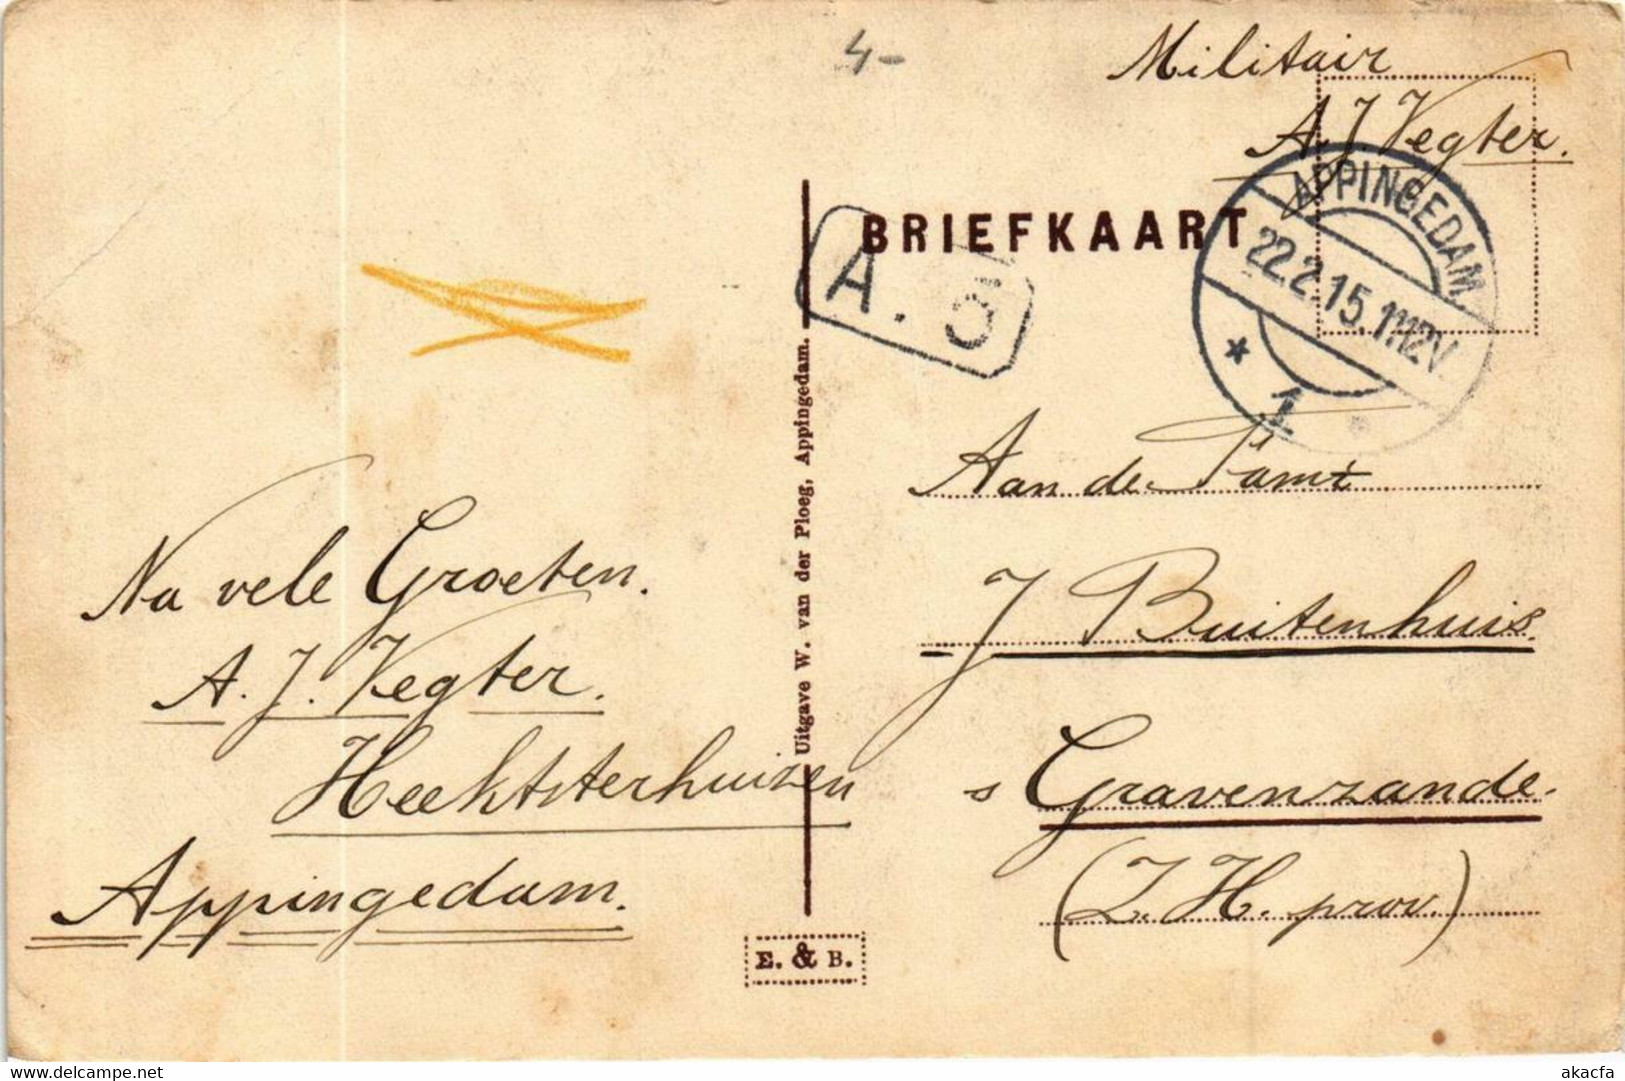 4-
Militair
A. J. Vegter.
BRIEFKAART
APPINGEDAM
22.2.15.11-12V
1
A. 3
Aan de Famt
J Buitenhuis.
s Gravenzande.
(Z. H. prov.)
Na vele Groeten.
A. J. Vegter.
Heektsterhuizen
Appingedam.
Uitgave W. van der Ploeg, Appingedam.
E. & B.
www.delcampe.net
akacfa